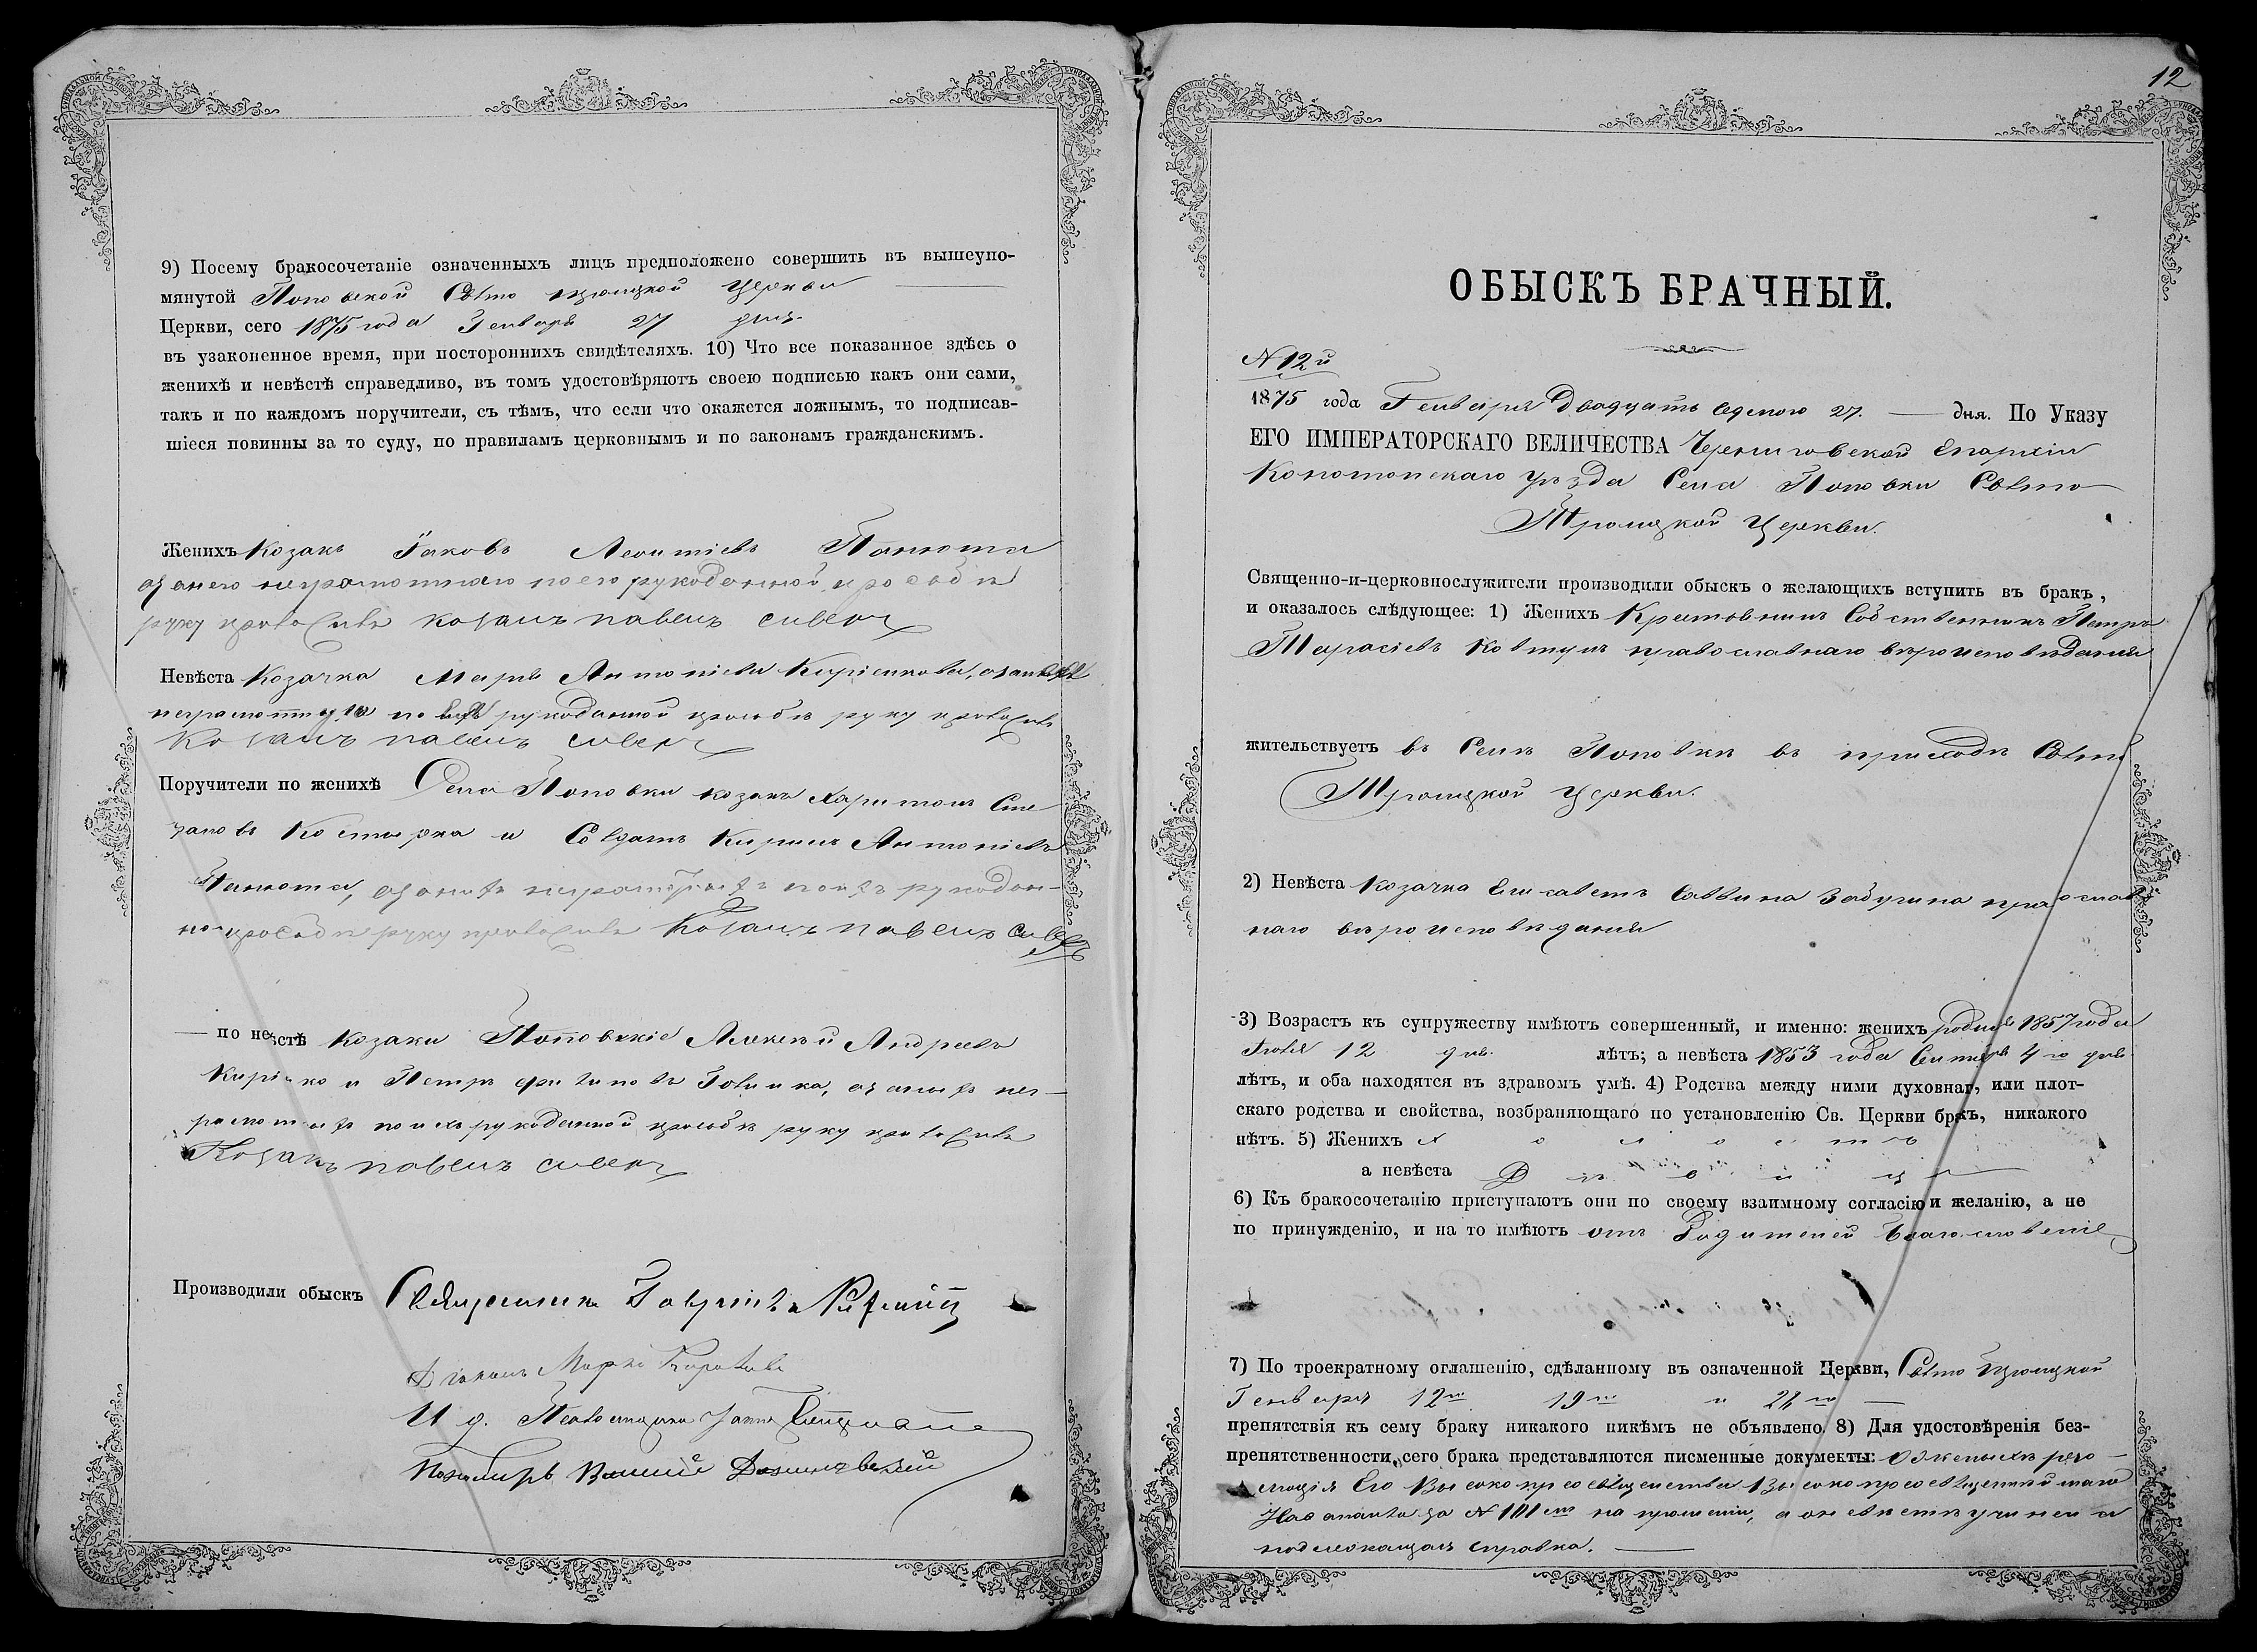 9) Посему бракосочетаніе означенныхъ лицъ предположено совершить въ вышеупо-
мянутой Поповской Свято Троицкой Церкви
Церкви, сего 1875 года Генваря 27 дня.
въ узаконенное время, при постороннихъ свидѣтеляхъ. 10) Что все показанное здѣсь о
женихѣ и невѣстѣ справедливо, въ томъ удостовѣряютъ своею подписью какъ они сами,
такъ и по каждомъ поручители, съ тѣмъ, что если что окажется ложнымъ, то подписав-
шіеся повинны за то суду, по правиламъ церковнымъ и по законамъ гражданскимъ.
Женихъ Козакъ Іаковъ Леонтіевъ Панюта
неграмотнаго по его рукоданной прозбѣ
руку приложилъ козакъ павелъ
Невѣста Козачка Марѳа Антоніева Киріенкова,
неграмотную по рукоданной прозьбѣ руку приложилъ
Козакъ павелъ
Поручители по женихѣ Села Поповки козакъ Харитонъ Сте
пановъ Костырка и Солдатъ Кирилъ Антоніевъ
Панюта, неграмотныхъ поихъ рукодан-
ной прозбѣ руку приложилъ Козакъ павелъ
— по невѣстѣ Козаки Поповскіе Алексѣй Андреевъ
Киріенко и Петръ Филиповъ за нихъ нег-
рамотныхъ поихъ рукоданной прозьбѣ руку приложилъ
Козакъ павелъ
Производили обыскъ Священникъ Гавріилъ
Діаконъ Марко
И. д. Псаломщика
Пономарь
12
ОБЫСКЪ БРАЧНЫЙ.
N 12й
1875 года Генваря Двадцать седмого 27. — дня. По Указу
ЕГО ИМПЕРАТОРСКАГО ВЕЛИЧЕСТВА Черниговской Епархіи
Конотопскаго уѣзда Села Поповки Свято
Троицкой Церкви.
Священно-и-церковнослужители производили обыскъ о желающихъ вступить въ бракъ,
и оказалось слѣдующее: 1) Женихъ Крестьянинъ Собственникъ Петръ
Тарасіевъ Ковтунъ православнаго вѣроисповѣданія
жительствуетъ въ Селѣ Поповкѣ въ приходѣ Свято
Троицкой Церкви.
2) Невѣста Козачка Елисаветъ Саввина Забугина православ
наго вѣроисповѣданія
3) Возрастъ къ супружеству имѣютъ совершенный, и именно: женихъ родился 1857 года
Іюля 12 дня. лѣтъ; а невѣста 1853 года Сентября 4го дня
лѣтъ, и оба находятся въ здравомъ умѣ. 4) Родства между ними духовнаг, или плот-
скаго родства и свойства, возбраняющаго по установленію Св. Церкви бракъ, никакого
нѣтъ. 5) Женихъ Холостъ
а невѣста Дѣвица
6) Къ бракосочетанію приступаютъ они по своему взаимному согласію и желанію, а не
по принужденію, и на то имѣютъ отъ Родителей Благословеніе
7) По троекратному оглашенію, сдѣланному въ означенной Церкви, Свято Троицкой
Генваря 12го 19го и 26го
препятствія къ сему браку никакого никѣмъ не объявлено. 8) Для удостовѣренія без-
препятственности, сего брака представляются писменные документы: О женихѣ резо-
люція Его Высокопреосвященства Высокопреосвященнѣйшаго
Наѳанаила за N на прошеніи, а о невѣстѣ учинена
подлежащая справка.